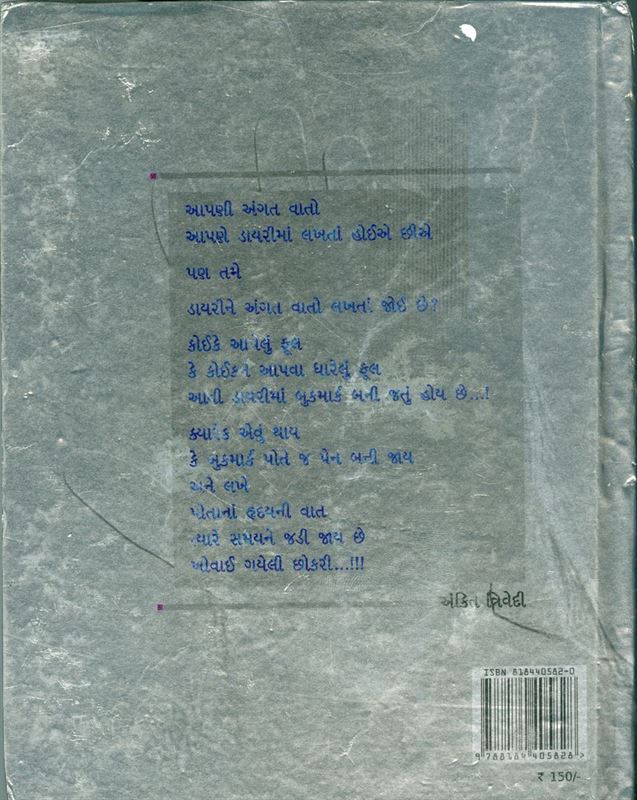 આપણી અંગત વાતો
આપણે ડાયરીમાં લખતાં હોઈએ છીએ
પણ તમે
ડાયરીને અંગત વાતો લખતાં જોઈ છે?
કોઈકે આપેલું ફૂલ
કે કોઈકને આપવા ધારેલું ફૂલ
આવી ડાયરીમાં બુકમાર્ક બની જતું હોય છે...!
ક્યારેક એવું થાય
કે બુકમાર્ક પોતે જ પેન બની જાય
અને લખે
પોતાનાં હૃદયની વાત
ત્યારે સમયને જડી જાય છે
ખોવાઈ ગયેલી છોકરી...!!!
અંકિત ત્રિવેદી
ISBN 818440582-0
9 788184 405828 >
₹ 150/-